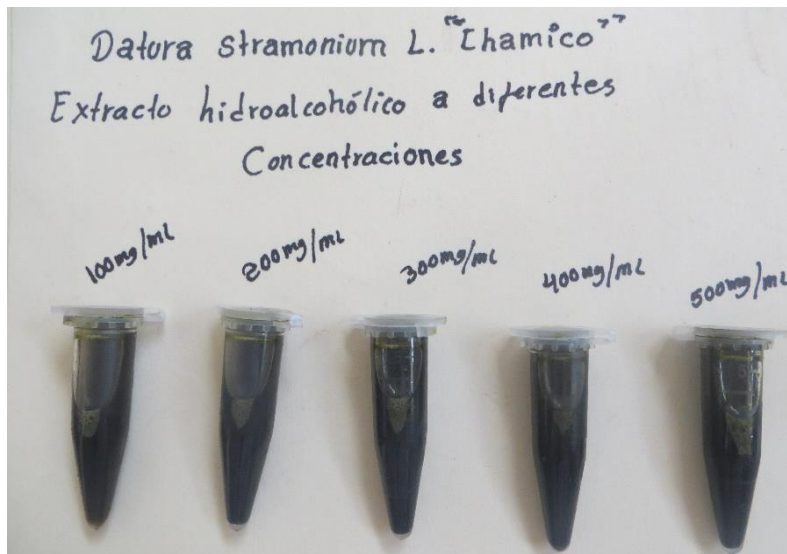 Datura stramonium L. "Chamico"
Extracto hidroalcohólico a diferentes
Concentraciones
100mg/mL
200mg/mL
300mg/mL
400mg/mL
500mg/mL